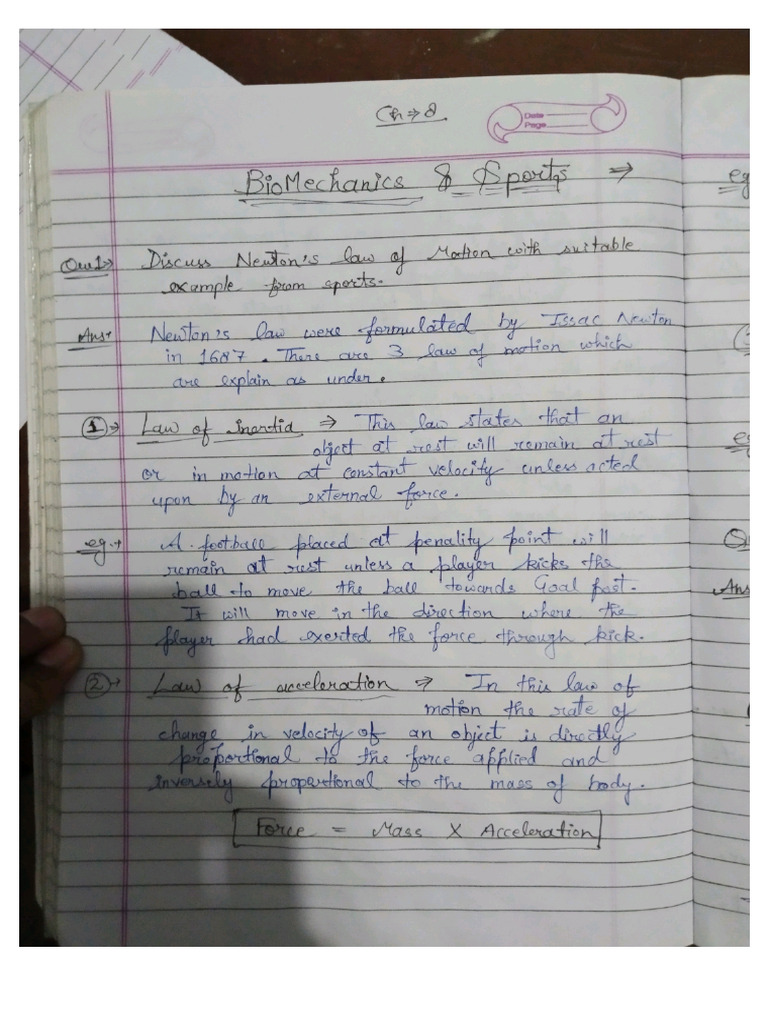 Ch ⇒ 8.
Date
Page
BioMechanics & Sports ⇒
eg
Que 1⇒ Discuss Newton's law of Motion with suitable
example from sports.
Ans→ Newton's law were formulated by Issac Newton
in 1687. There are 3 law of motion which
are explain as under.
①→ Law of inertia ⇒ This law states that an
object at rest will remain at rest
or in motion at constant velocity unless acted
upon by an external force.
eg.→ A football placed at penality point will
remain at rest unless a player kicks the
ball to move the ball towards Goal post.
It will move in the direction where the
player had exerted the force through kick.
②→ Law of acceleration ⇒ In this law of
motion the rate of
change in velocity of an object is directly
proportional to the force applied and
inversely propertional to the mass of body.
Force = Mass X Acceleration
eg
Ans